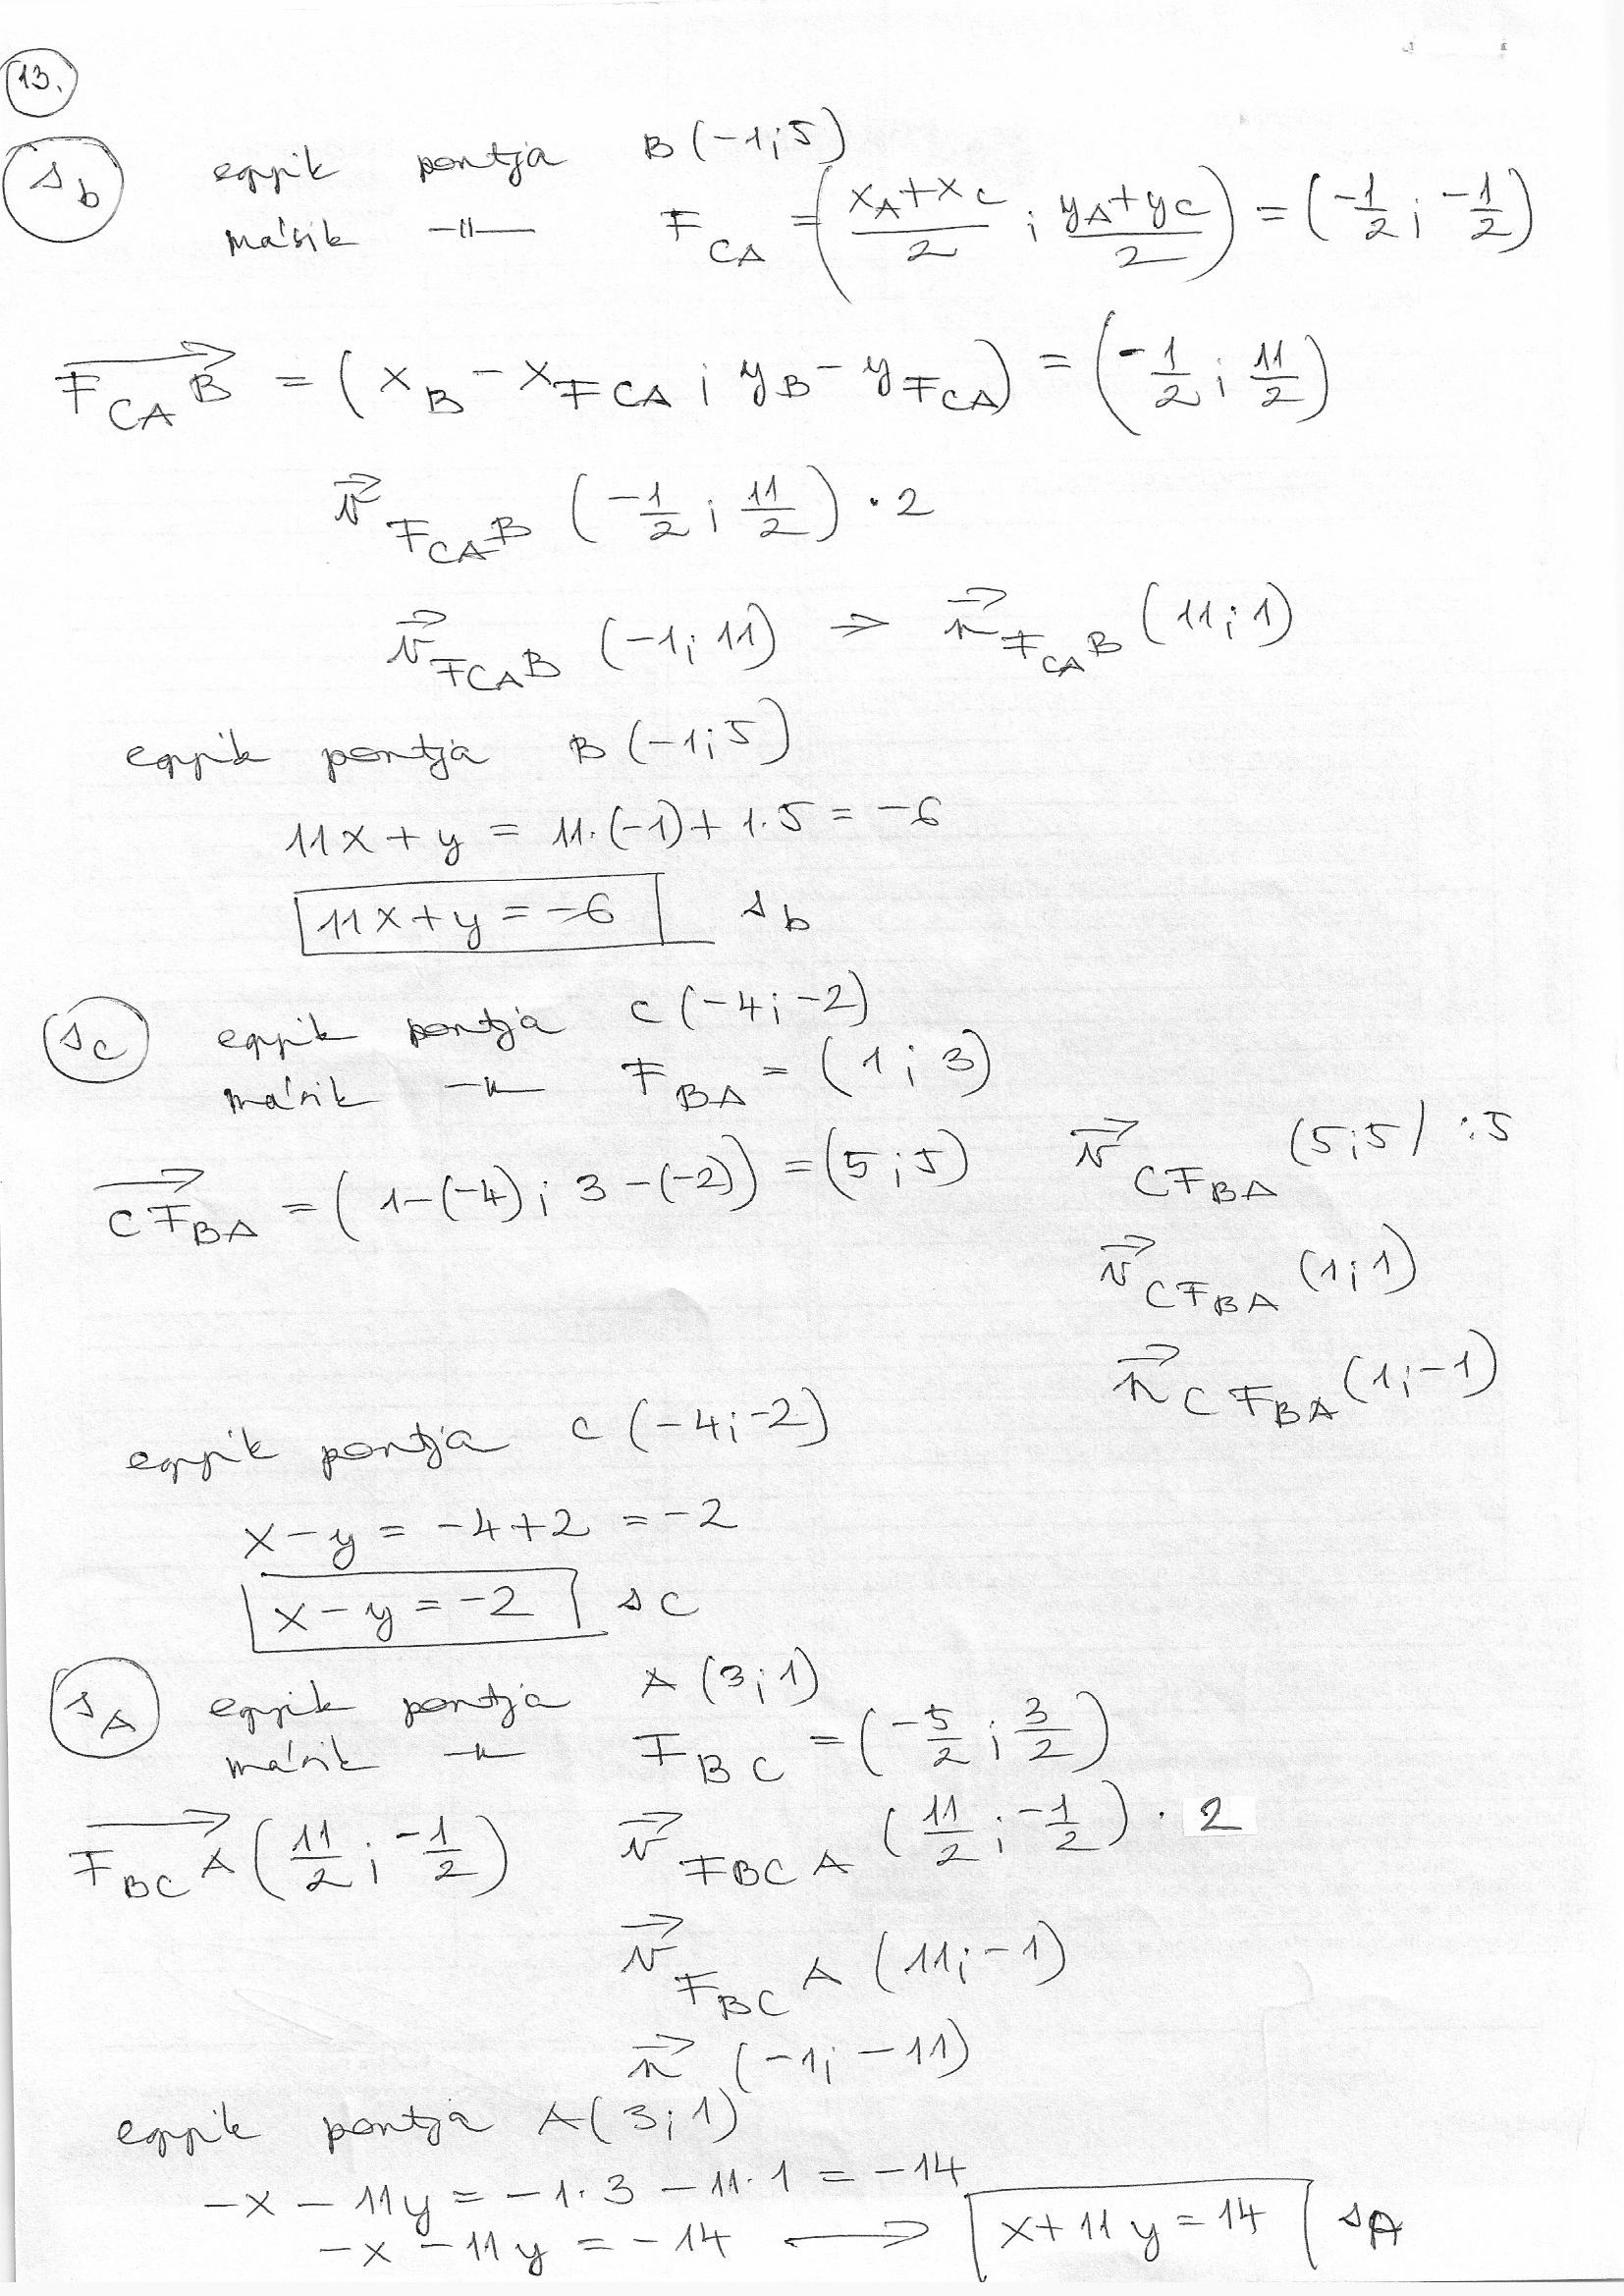 13.
s_b egyik pontja B(-1;5)
másik -||- F_CA = ((x_A+x_C)/2 ; (y_A+y_C)/2) = (-1/2 ; -1/2)
→F_CA B = (x_B - x_F_CA ; y_B - y_F_CA) = (-1/2 ; 11/2)
→v F_CA B (-1/2 ; 11/2) · 2
→v F_CA B (-1; 11) ⇒ →n F_CA B (11; 1)
egyik pontja B(-1;5)
11x + y = 11·(-1) + 1·5 = -6
11x + y = -6 s_b
s_c egyik pontja C(-4;-2)
másik -||- F_BA = (1; 3)
→CF_BA = (1-(-4); 3-(-2)) = (5;5) →v CF_BA (5;5) /:5
→v CF_BA (1;1)
→n CF_BA (1;-1)
egyik pontja C(-4;-2)
x - y = -4+2 = -2
x - y = -2 s_c
s_A egyik pontja A(3;1)
másik -||- F_BC = (-5/2 ; 3/2)
→F_BC A (11/2 ; -1/2) →v F_BC A (11/2 ; -1/2) · 2
→v F_BC A (11;-1)
→n (-1; -11)
egyik pontja A(3;1)
-x - 11y = -1·3 - 11·1 = -14
-x - 11y = -14 → x + 11y = 14 s_A